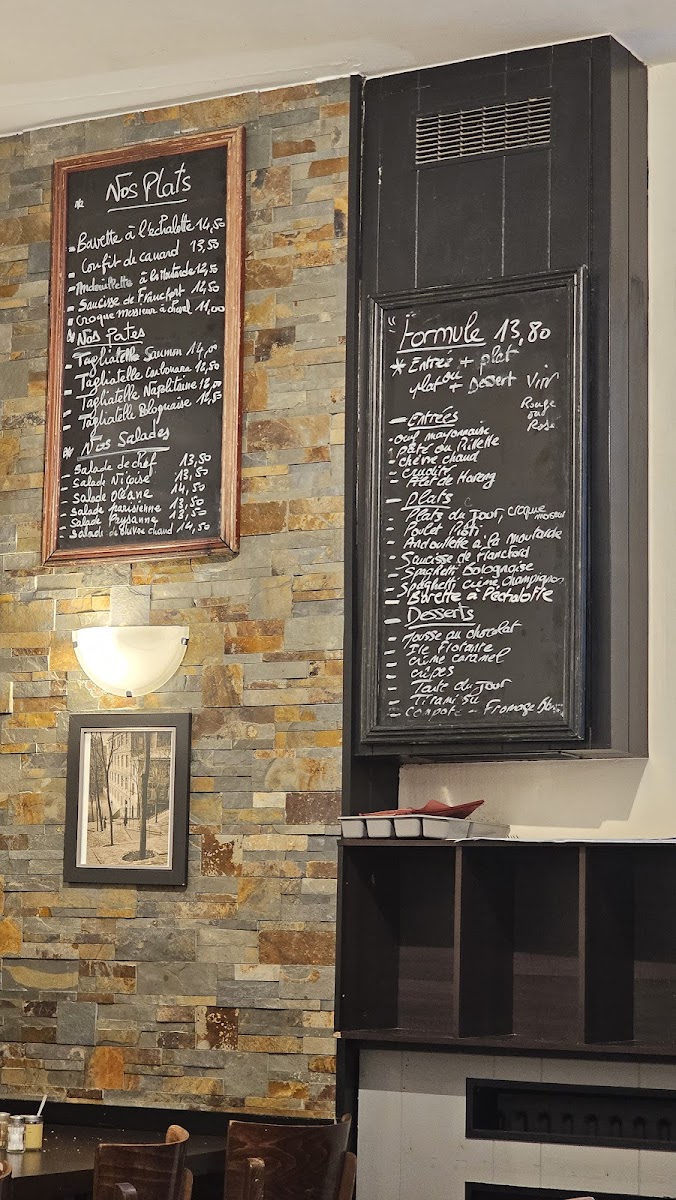 Nos Plats
- Bavette à l'échalotte 14,50
- Confit du canard 13,50
- Andouillette à la Moutarde 12,50
- Saucisse de Francfort 12,50
- Croque Monsieur à cheval 11,00
Nos Pates
- Tagliatelle Saumon 14,00
- Tagliatelle Carbonara 12,50
- Tagliatelle Napolitaine 12,00
- Tagliatelle Bolognaise 12,50
Nos Salades
- Salade de chef 13,50
- Salade Niçoise 13,50
- Salade Océane 14,50
- Salade parisienne 13,50
- Salade Paysanne 13,50
- Salade de chèvre chaud 14,50
Formule 13,80
* Entrée + plat
ou
plat + Dessert Vin
Rouge
ou
Rosé
- Entrées
- oeuf mayonnaise
pâté ou Rillette
- chèvre chaud
- crudité
- Filet de Hareng
- Plats
- Plats du jour, croque monsieur
- Poulet Roti
- Andoullette à la moutarde
- Saucisse de
- Spaghetti Bolognaise
- Spaghetti crème champignon
- Bavette à l'échalotte
Desserts
- Mousse au chocolat
- Ile Flotante
- crème caramel
- crêpes
- Tarte du jour
- Tirami su
- Compote - Fromage Blanc